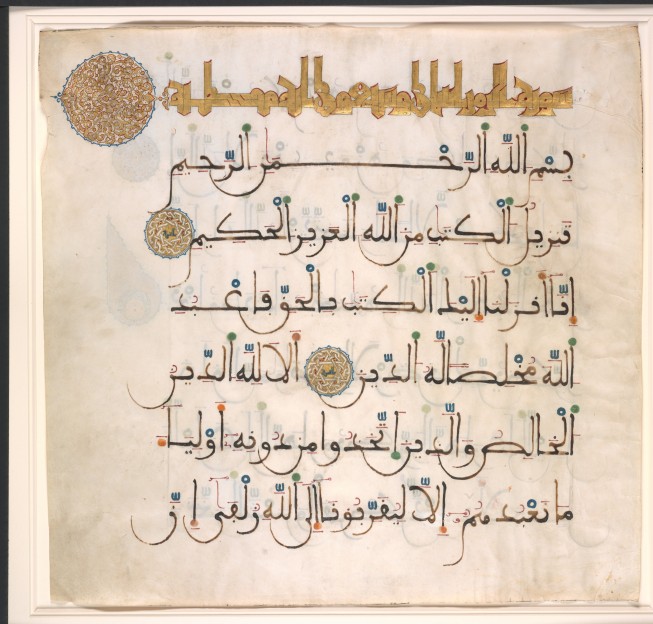 سورة الزمر
بِسْمِ اللَّهِ الرَّحْمَنِ الرَّحِيمِ
تنزيلُ الْكتب من اللَّه الْعزيز الْحكيم
إنَّا أنزلْنا إليك الْكتب بالْحقّ فاعْبد
اللَّه مُخْلصا لَّه الدّين ألا للَّه الدّين
الْخالص والَّذين اتَّخذوا من دونه أوْلياء
ما نعْبدهم إلاَّ ليقرّبونا إلى اللَّه زلْفى إنّ